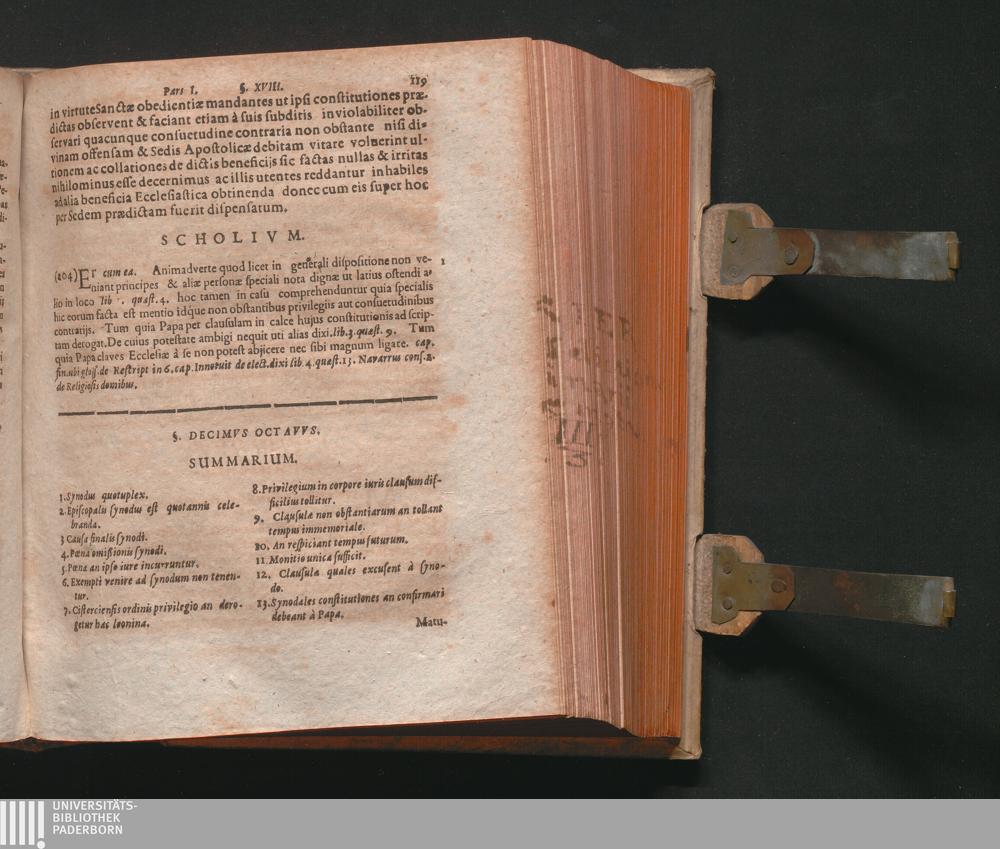 Pars I. §. XVIII. 119
in virtute Sanctæ obedientiæ mandantes ut ipsi constitutiones præ-
dictas observent & faciant etiam à suis subditis inviolabiliter ob-
servari quacunque consuetudine contraria non obstante nisi di-
vinam offensam & Sedis Apostolicæ debitam vitare voluerint ul-
tionem ac collationes de dictis beneficijs sic factas nullas & irritas
nihilominus esse decernimus ac illis utentes reddantur inhabiles
ad alia beneficia Ecclesiastica obtinenda donec cum eis super hoc
per Sedem prædictam fuerit dispensatum.
SCHOLIVM.
(204) Et cum ea. Animadverte quod licet in generali dispositione non ve- 1
niant principes & aliæ personæ speciali nota dignæ ut latius ostendi a-
lio in loco lib . quæst. 4. hoc tamen in casu comprehenduntur quia specialis
hic eorum facta est mentio idque non obstantibus privilegiis aut consuetudinibus
contrarijs. Tum quia Papa per clausulam in calce hujus constitutionis ad scrip-
tam derogat. De cuius potestate ambigi nequit uti alias dixi. lib. 3. quæst. 9. Tum
quia Papa claves Ecclesiæ à se non potest abjicere nec sibi magnum ligare. cap.
fin. ubi gloss. de Restript in 6. cap. Innotuit de elect. dixi lib. 4. quæst. 13. Navarrus cons. 2.
de Religiosis domibus.
§. DECIMVS OCTAVVS.
SUMMARIUM.
1. Synodus quotuplex.
2. Episcopalis synodus est quotannis cele-
branda.
3 Causa finalis synodi.
4. Pœna omissionis synodi.
5. Pœna an ipso iure incurruntur.
6. Exempti venire ad synodum non tenen-
tur.
7. Cisterciensis ordinis privilegio an dero-
getur hac leonina.
8. Privilegium in corpore iuris clausum dif-
ficilius tollitur.
9. Clausulæ non obstantiarum an tollant
tempus immemoriale.
10. An respiciant tempus futurum.
11. Monitio unica sufficit.
12. Clausula quales excusent à syno-
do.
13. Synodales constitutiones an confirmari
debeant à Papa.
Matu-
UNIVERSITÄTS-
BIBLIOTHEK
PADERBORN